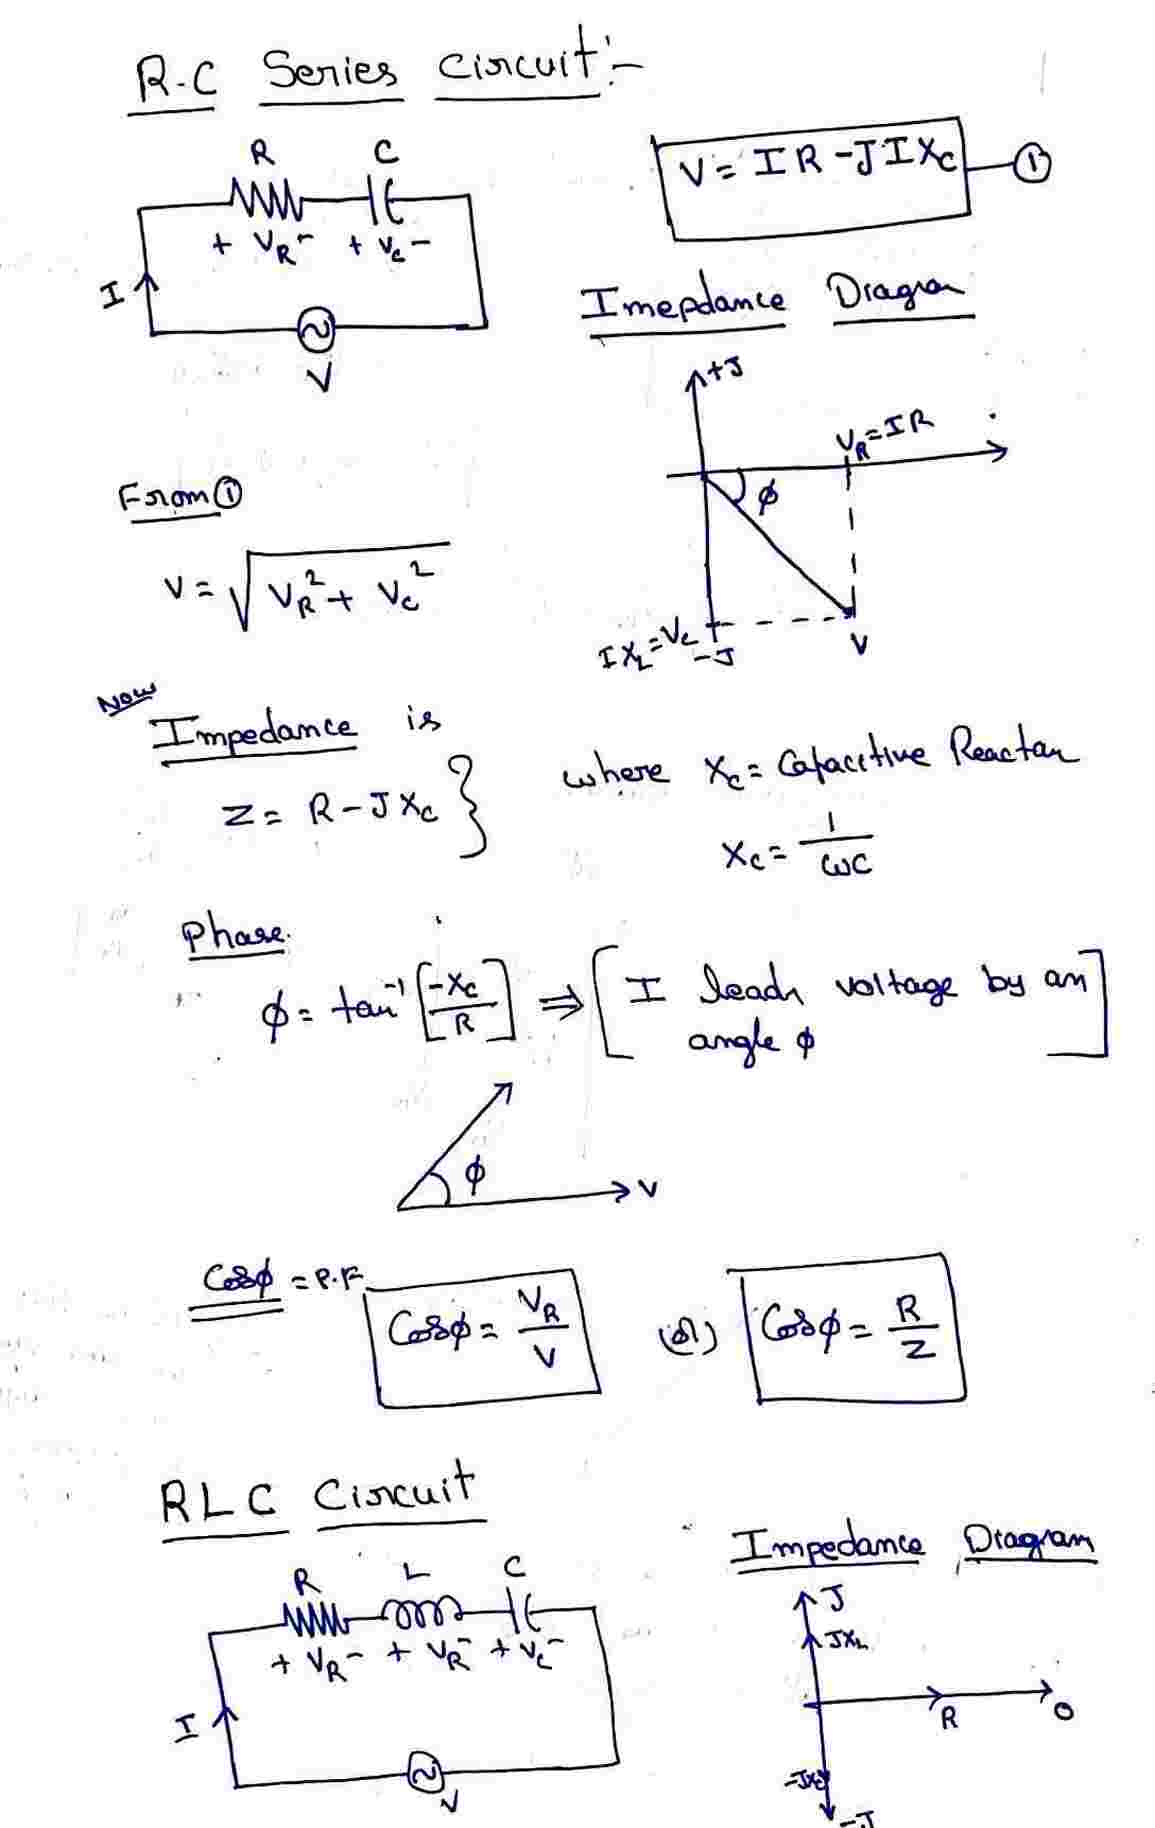 R-C Series Circuit:-
R C
V = IR - JIXc — ①
+ VR - + Vc -
I
V
Imepdance Diagran
+J
VR = IR
ϕ
IXL = Vc
-J
V
From ①
V = √VR² + Vc²
Now
Impedance is
Z = R - JXc }
where Xc = Capacitive Reactan
Xc = 1/ωC
Phase
ϕ = tan⁻¹ [-Xc/R] ⇒ [I leads voltage by an
angle ϕ]
ϕ
V
Cosϕ = P.F
Cosϕ = VR/V (or) Cosϕ = R/Z
RLC Circuit
R L C
+ VR - + VR - + Vc -
I
V
Impedance Diagram
J
JXL
R
0
-JXc
-J